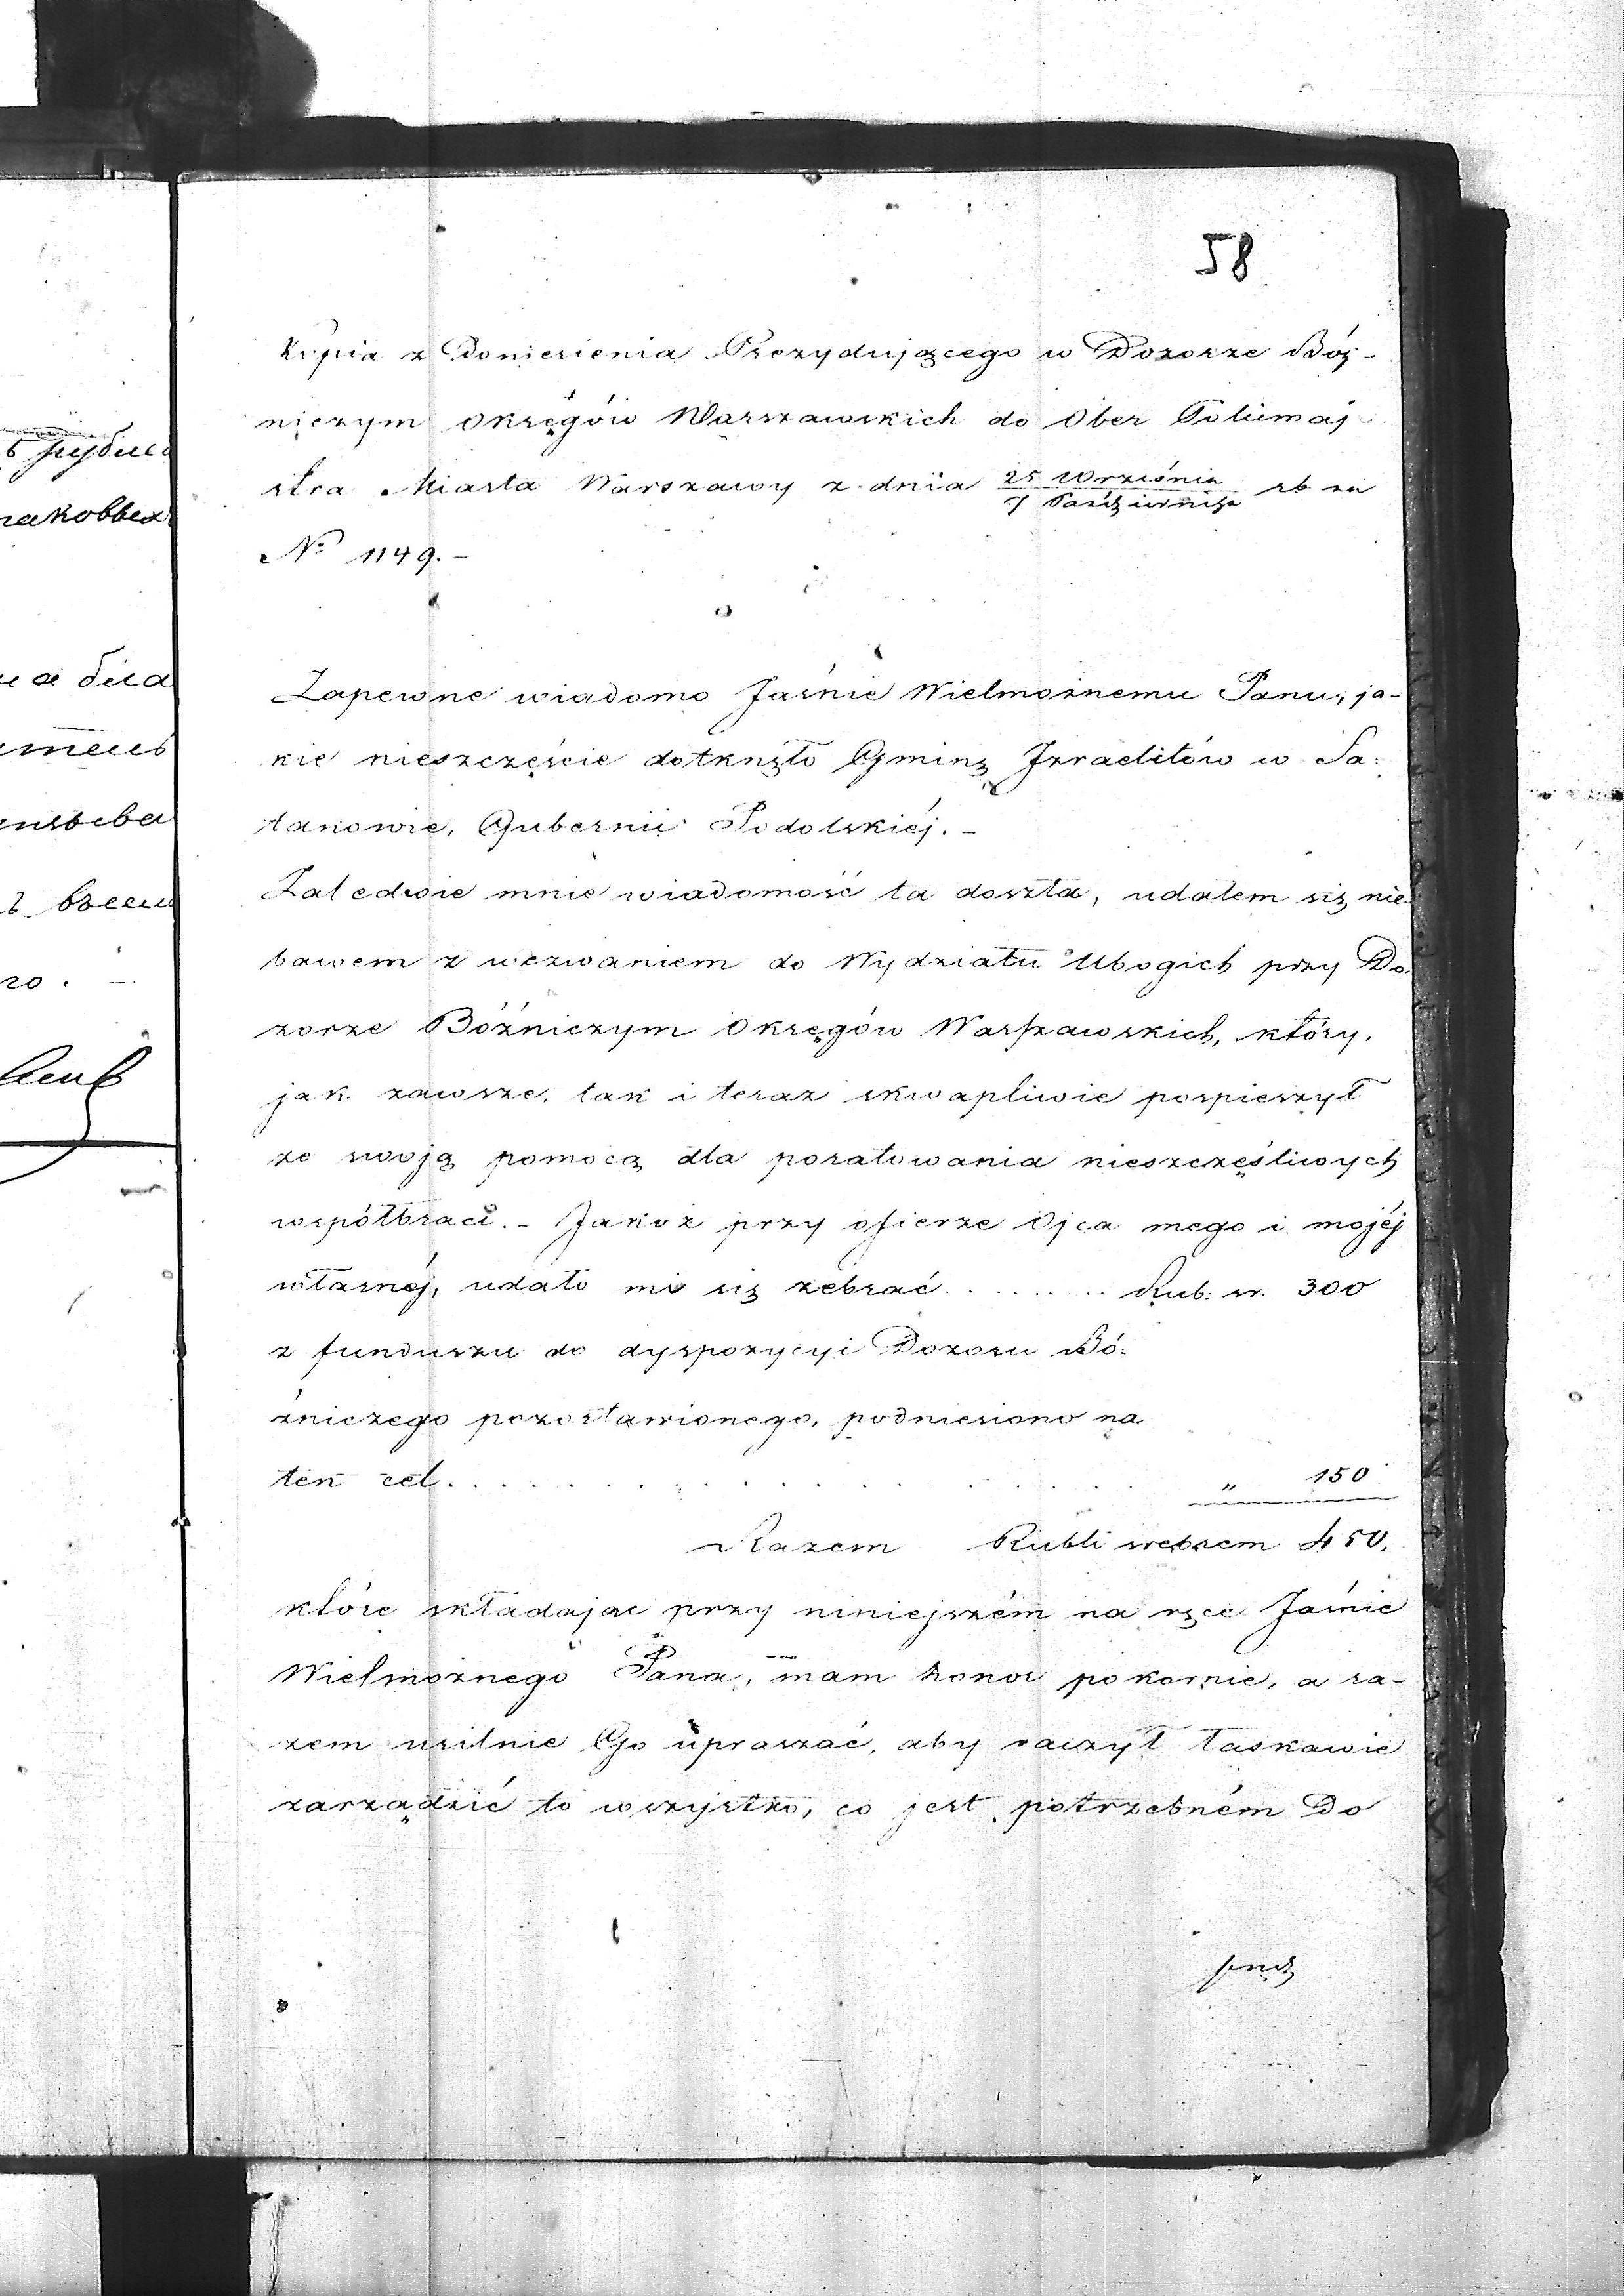 58
Kopia z Doniesienia Prezydującego w Dozorze Bóż-
niczym Okręgów Warszawskich do Ober Policmaj-
stra Miasta Warszawy z dnia 25 Września / 7 Październ. rb za
№ 1149. -
Zapewne wiadomo Jaśnie Wielmożnemu Panu, ja-
kie nieszczęście dotknęło Gminę Izraelitów w Sa-
tanowie, Gubernii Podolskiéj. -
Zaledwie mnie wiadomość ta doszła, udałem się nie-
bawem z wezwaniem do Wydziału Ubogich przy Do-
zorze Bóźniczym Okręgów Warszawskich, który,
jak zawsze, tak i teraz skwapliwie pospieszył
ze swoją pomocą dla poratowania nieszczęśliwych
współbraci. - Jakoż przy ofierze Ojca mego i mojéj
własnéj, udało mi się zebrać......... Rub: sr. 300
z funduszu do dyspozycyi Dozoru Bó-
źniczego pozostawionego, podniesiono na
ten cel................. " 150
Razem Rubli srebrem 450.
które składając przy niniejszém na ręce Jaśnie
Wielmożnego Pana, mam honor pokornie, a ra-
zem usilnie Go upraszać, aby raczył łaskawie
zarządzić to wszystko, co jest potrzebném do